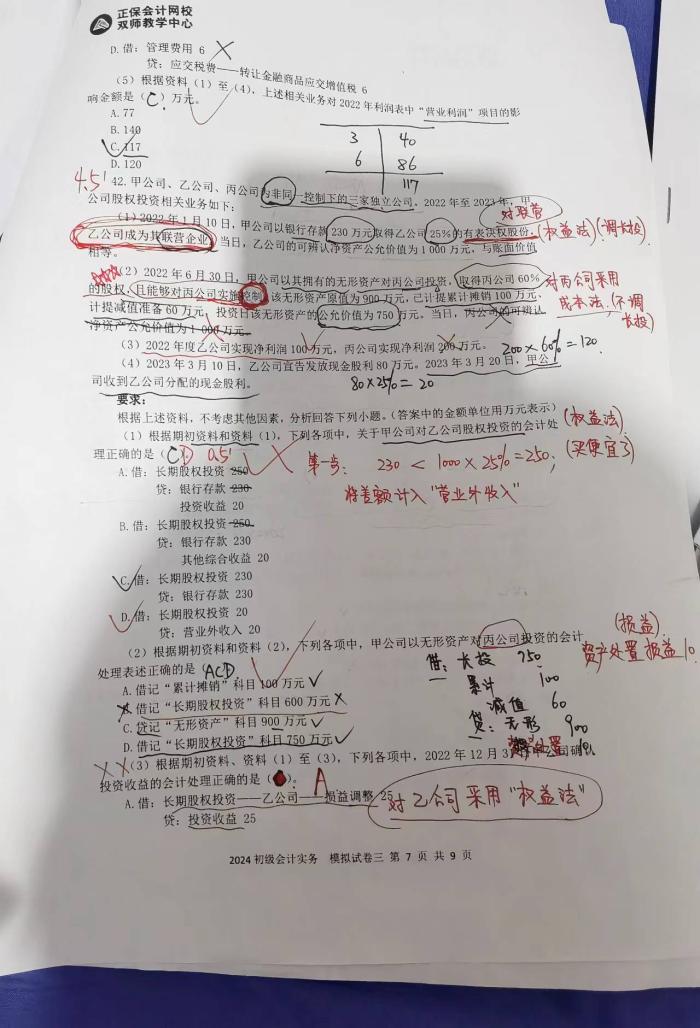 正保会计网校
双师教学中心
D. 借: 管理费用 6
贷: 应交税费——转让金融商品应交增值税 6
(5) 根据资料 (1) 至 (4), 上述相关业务对 2022 年利润表中“营业利润”项目的影
响金额是 ( C ) 万元。
A. 77
B. 140
C. 117
D. 120
3 40
6 86
117
4.5'
42. 甲公司、乙公司、丙公司为非同一控制下的三家独立公司。2022 年至 2023 年, 甲
公司股权投资相关业务如下:
对联营
(1) 2022 年 1 月 10 日, 甲公司以银行存款 230 万元取得乙公司 25%的有表决权股份,
(权益法) (调长投)
乙公司成为其联营企业, 当日, 乙公司的可辨认净资产公允价值为 1 000 万元, 与账面价值
相等。
(2) 2022 年 6 月 30 日, 甲公司以其拥有的无形资产对丙公司投资, 取得丙公司 60%
的股权, 且能够对丙公司实施控制, 该无形资产原值为 900 万元, 已计提累计摊销 100 万元、
计提减值准备 60 万元, 投资日该无形资产的公允价值为 750 万元。当日, 丙公司的可辨认
净资产公允价值为 1 000 万元。
对丙公司采用
成本法, (不调
长投)
(3) 2022 年度乙公司实现净利润 100 万元, 丙公司实现净利润 200 万元。
200×60%=120.
(4) 2023 年 3 月 10 日, 乙公司宣告发放现金股利 80 万元。2023 年 3 月 20 日, 甲公
司收到乙公司分配的现金股利。
80×25%=20
要求:
根据上述资料, 不考虑其他因素, 分析回答下列小题。(答案中的金额单位用万元表示)
(1) 根据期初资料和资料 (1), 下列各项中, 关于甲公司对乙公司股权投资的会计处
(权益法)
理正确的是 ( CD
0.5'
第一步: 230 < 1000×25%=250, (买便宜了)
将差额计入“营业外收入”
A. 借: 长期股权投资 250
贷: 银行存款 230
投资收益 20
B. 借: 长期股权投资 250
贷: 银行存款 230
其他综合收益 20
C. 借: 长期股权投资 230
贷: 银行存款 230
D. 借: 长期股权投资 20
贷: 营业外收入 20
(2) 根据期初资料和资料 (2), 下列各项中, 甲公司以无形资产对丙公司投资的会计
处理表述正确的是 ( ACD )
(损益)
资产处置损益 10
A. 借记“累计摊销”科目 100 万元
B. 借记“长期股权投资”科目 600 万元
C. 贷记“无形资产”科目 900 万元
D. 借记“长期股权投资”科目 750 万元
借: 长投 750
累计 100
减值 60
贷: 无形 900
(3) 根据期初资料、资料 (1) 至 (3), 下列各项中, 2022 年 12 月 3
确认
投资收益的会计处理正确的是 (
)。
A
A. 借: 长期股权投资——乙公司——损益调整 25
贷: 投资收益 25
对乙公司采用“权益法”
2024 初级会计实务 模拟试卷三 第 7 页 共 9 页